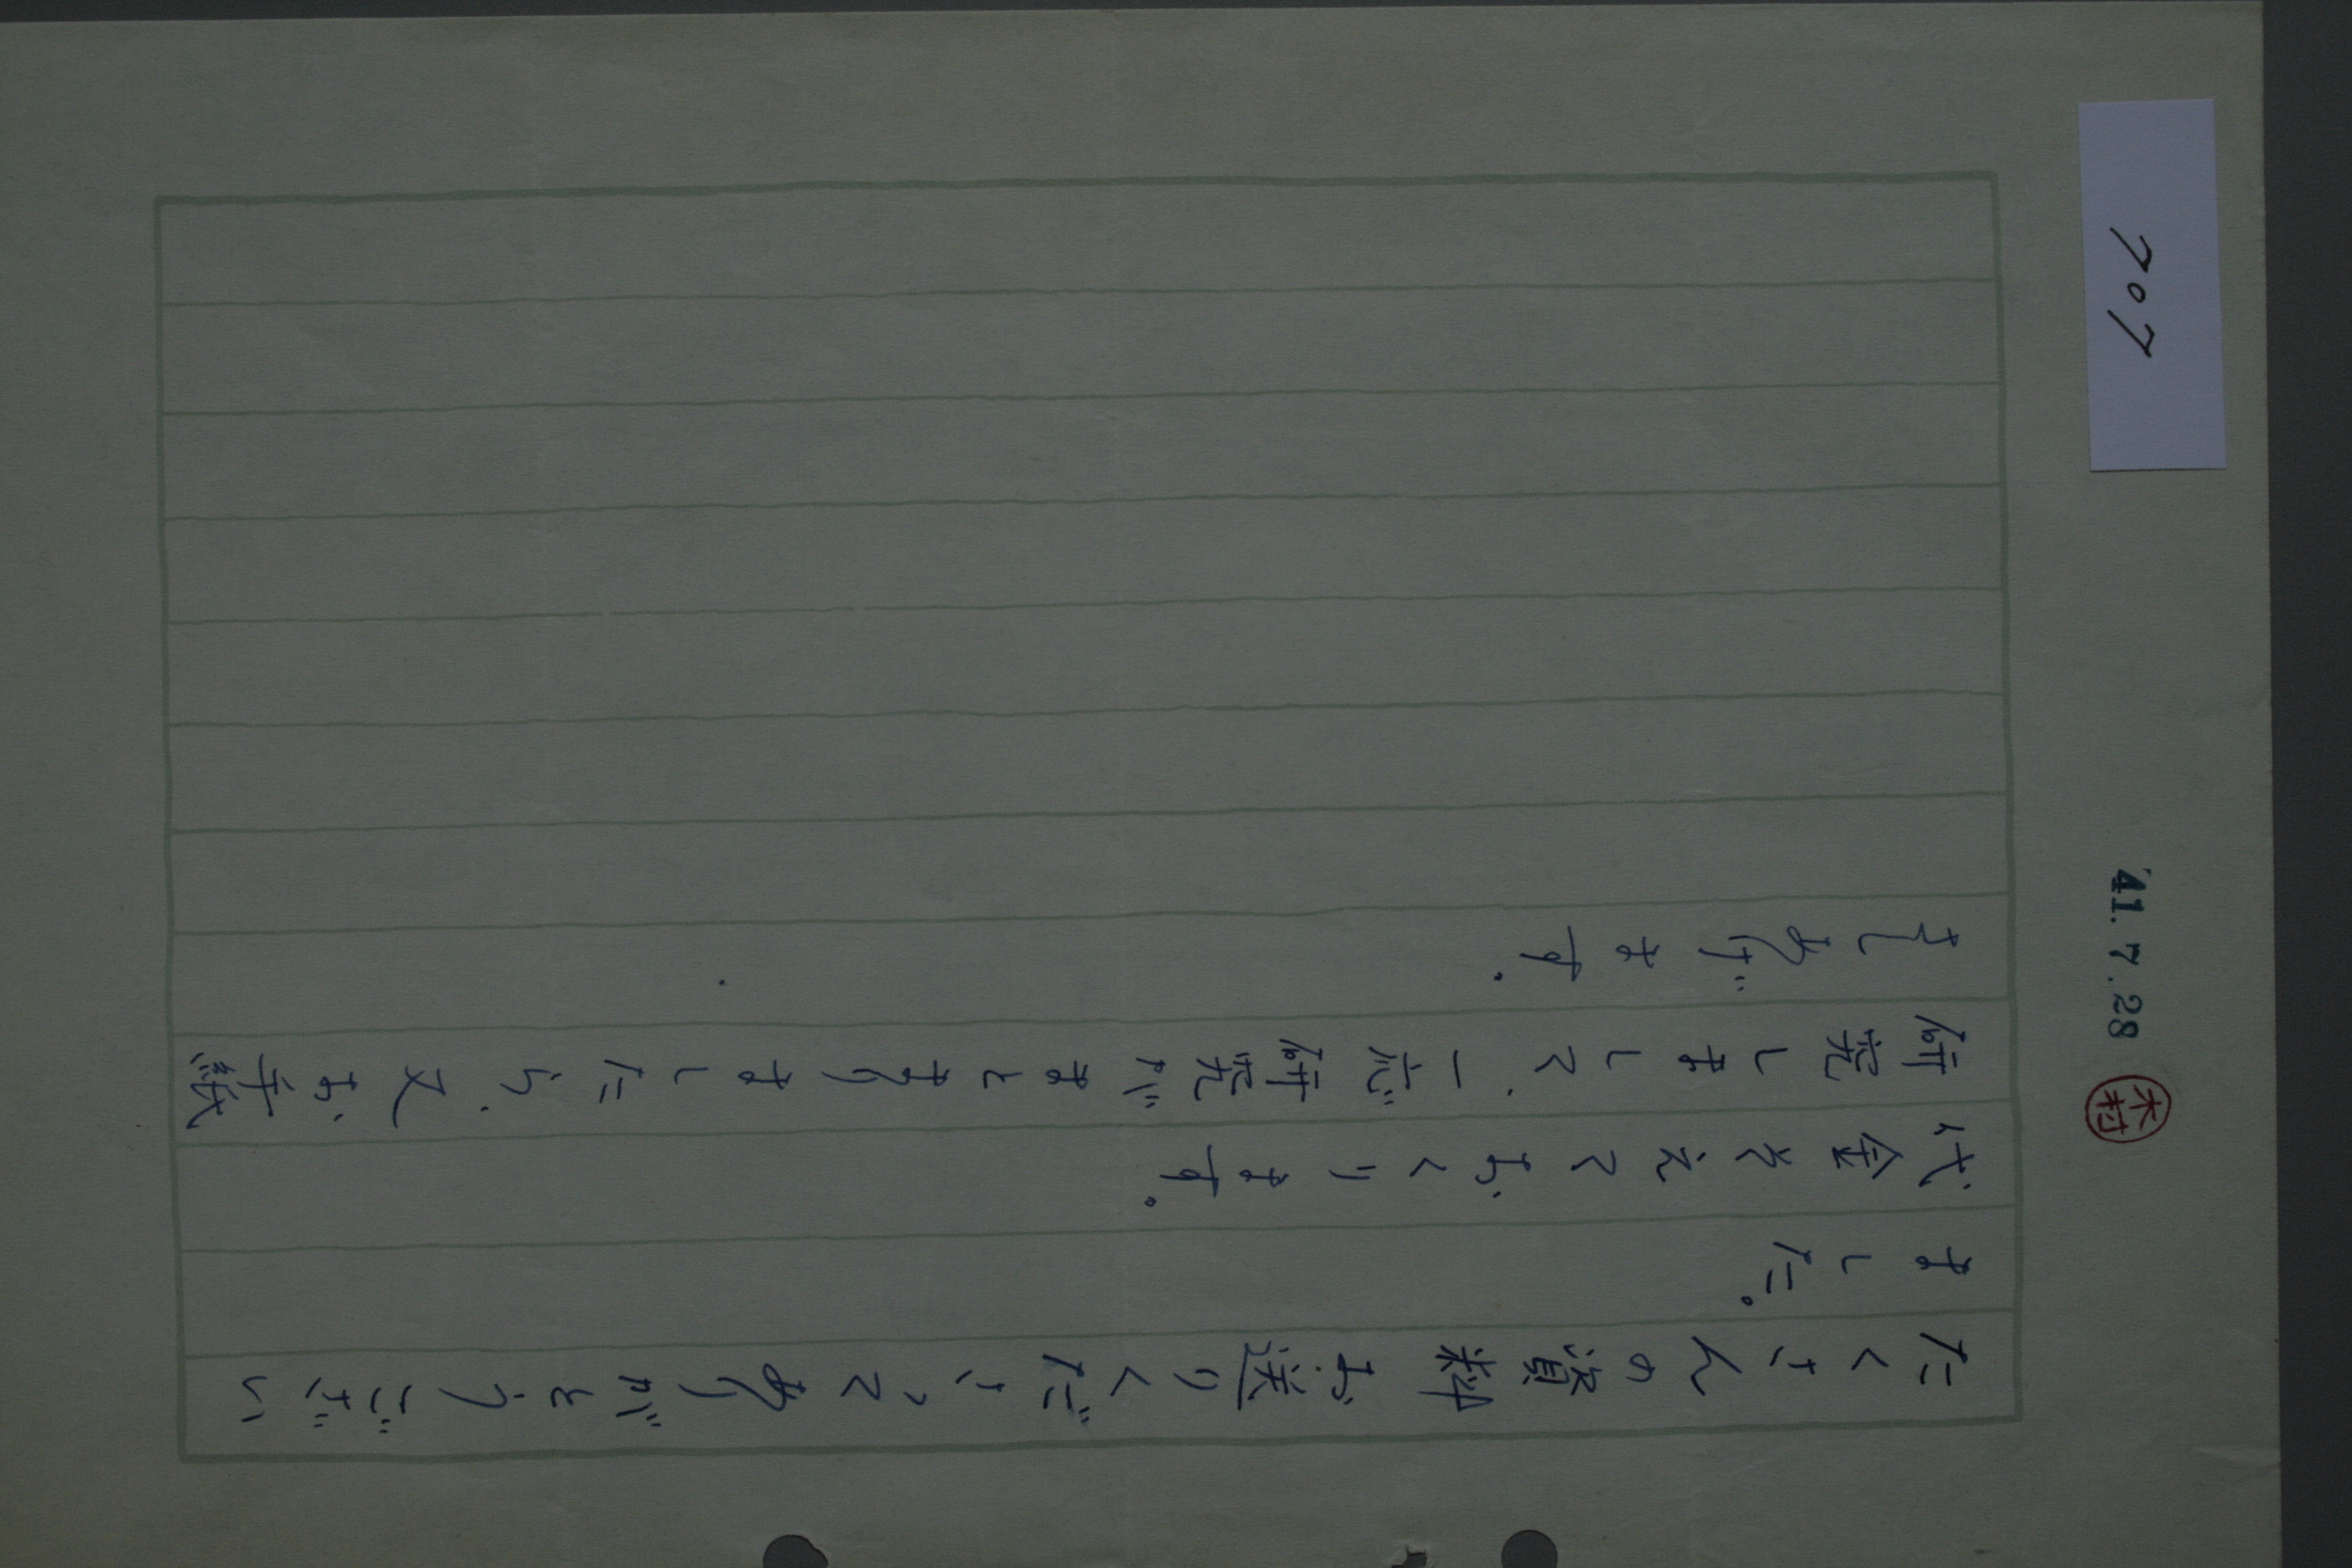 707
41.7.28 木村
たくさんの資料お送りくださってありがとうござい
ました。
代金そえておくります。
研究しまして、一応研究がまとまりましたら、又お手紙
さしあげます。